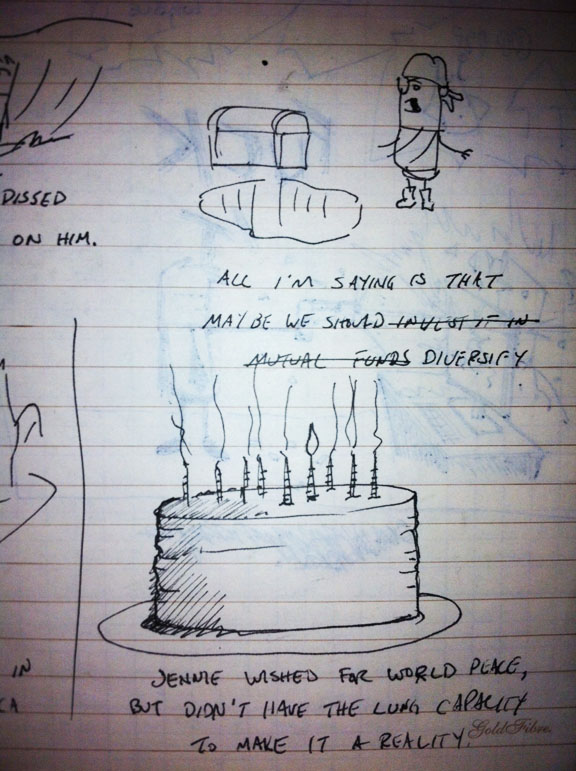 DISSED
ON HIM.
ALL I'M SAYING IS THAT
MAYBE WE SHOULD INVEST IT IN
MUTUAL FUNDS DIVERSIFY
IN
JENNIE WISHED FOR WORLD PEACE,
BUT DIDN'T HAVE THE LUNG CAPACITY
TO MAKE IT A REALITY.
GoldFibre